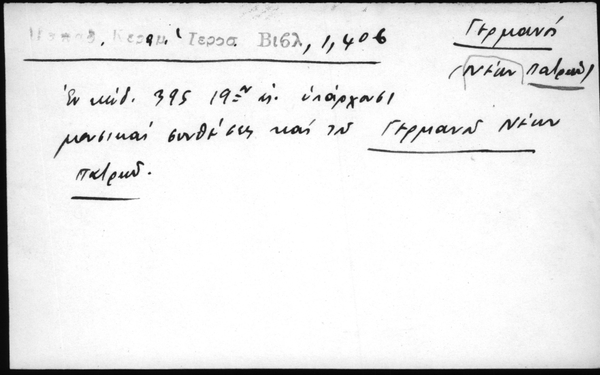 Παπαδ. Κεραμ. Ιεροσ. Βιβλ, 1, 406
Γερμανός
(Νέων Πατρῶν)
Ἐν κώδ. 395 19ου αἰ. ὑπάρχουσι
μουσικαί συνθέσεις καί τοῦ Γερμανοῦ Νέων
Πατρῶν.